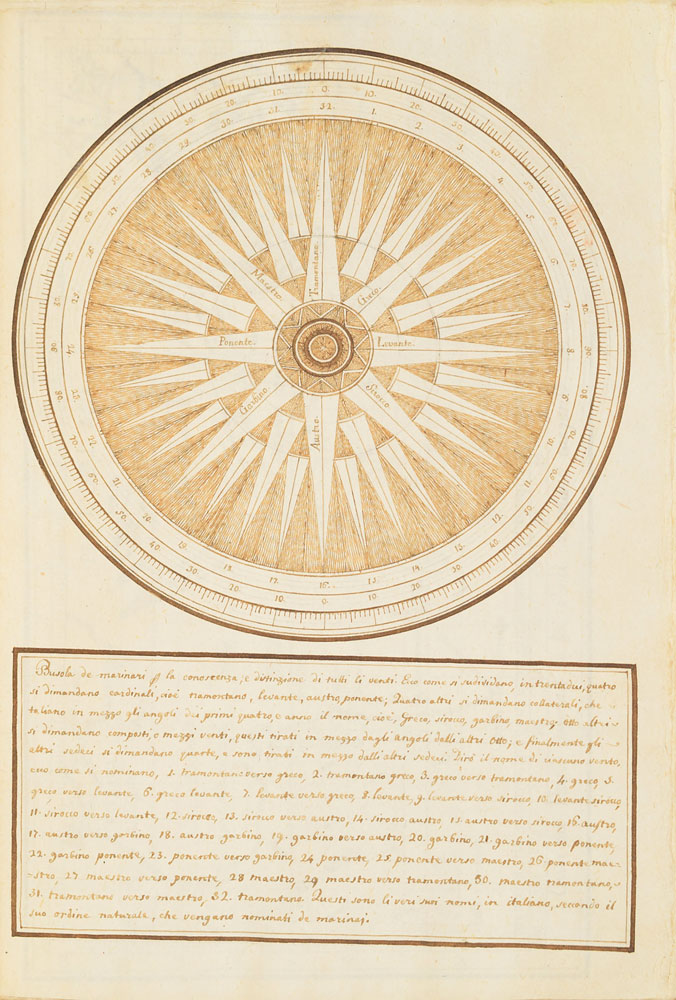 Tramontano.
Greco.
Levante.
Sirocco
Austro.
Garbino
Ponente.
Maestro.
Busola de marinari ꝑ la conoscenza; e distinzione di tutti li venti. Eco come si sudividano, in trentadui, quatro
si dimandano cardinali, cioè tramontano, levante, austro, ponente; Quatro altri si dimandano collaterali, che
taliano in mezzo gli angoli dei primi quatro, e anno il nome, cioè, Greco, siroco, garbino, maestro; otto altri
si dimandano composti, o mezzi venti, questi tirati in mezzo dagli angoli dalli altri Otto; e finalmente gli
altri sedeci si dimandano quarte, e sono tirati in mezzo dalli altri sedeci. Dirò il nome di ciascuno vento,
eco come si nominano, 1. tramontano verso greco, 2. tramontano greco, 3. greco verso tramontano, 4. greco, 5.
greco verso levante, 6. greco levante, 7. levante verso greco, 8. levante, 9. levante verso siroco, 10. levante siroco,
11. siroco verso levante, 12. siroco, 13. siroco verso austro, 14. siroco austro, 15. austro verso siroco, 16. austro,
17. austro verso gorbino, 18. austro garbino, 19. garbino verso austro, 20. garbino, 21. garbino verso ponente,
22. garbino ponente, 23. ponente verso garbino, 24 ponente, 25. ponente verso maestro, 26 ponente mae-
stro, 27 maestro verso ponente, 28 maestro, 29 maestro verso tramontano, 30. maestro tramontano,
31. tramontano verso maestro, 32. tramontano. Questi sono li veri suoi nomi, in italiano, secondo il
suo ordine naturale, che vengano nominati de marinaj.
0. 10. 20. 30. 40. 50. 60. 70. 80. 90. 80. 70. 60. 50. 40. 30. 20. 10. 0. 10. 20. 30. 40. 50. 60. 70. 80. 90. 80. 70. 60. 50. 40. 30. 20. 10.
32. 1. 2. 3. 4. 5. 6. 7. 8. 9. 10. 11. 12. 13. 14. 15. 16. 17. 18. 19. 20. 21. 22. 23. 24. 25. 26. 27. 28. 29. 30. 31.